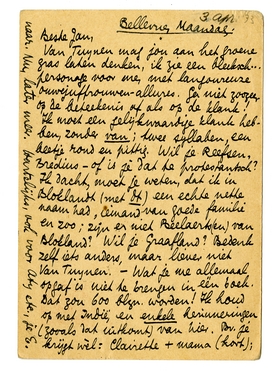 3 Apr. 33
Bellevue, Maandag
Beste Jan,
Van Tuynen maf jou aan het groene
gras laten denken; ik zie een bleeksch...
personage voor me, met langoureuze
ouwejuffrouwen-allures. Ga niet zoozeer
op de beteekenis af als op de klank!
Ik moet een gelijkwaardige klank heb-
ben, zonder van; twee syllaben, een
beetje rond en pittig. Wil je Reefsen,
Bredius – of is je dat te protestantsch?
Ik dacht, moet je weten, dat ik in
Bloklandt (met dt) een echte nette
naam had, iemand van goede familie
en zoo; zijn er niet Beelaertsen van
Blokland? Wil je Graafland? Bedenk
zelf iets anders, maar liever niet
Van Tuynen. – Wat je me allemaal
opgaf is niet te brengen in één boek.
Dat zou 600 blzn. worden! Ik houd
op met Indië, en enkele herinneringen
(zooals dat uitkomt) van hier. Bv. je
krijgt wel: Clairette + mama (kort);
naar. Mij later, meer